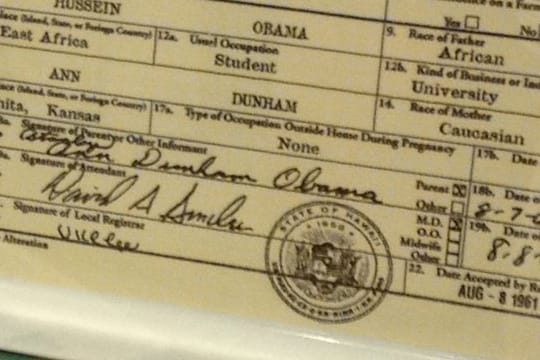 HUSSEIN OBAMA
Yes No
(Island, State, or Foreign Country) 12a. Usual Occupation 9. Race of Father
East Africa Student African
12b. Kind of Business or
University
ANN DUNHAM 14. Race of Mother
(Island, State, or Foreign Country) 17a. Type of Occupation Outside Home During Pregnancy Caucasian
Kansas None 17b. Date
Signature of Parent or Other Informant Parent 18b. Date
Ann Dunham Obama Other 8-7-
Signature of Attendant M.D. 19b. Date
David A Sinclair O.O. 8-8-
Midwife
Signature of Local Registrar Other
22. Date Accepted by
AUG - 8 1961
Alteration
STATE OF HAWAII
1959